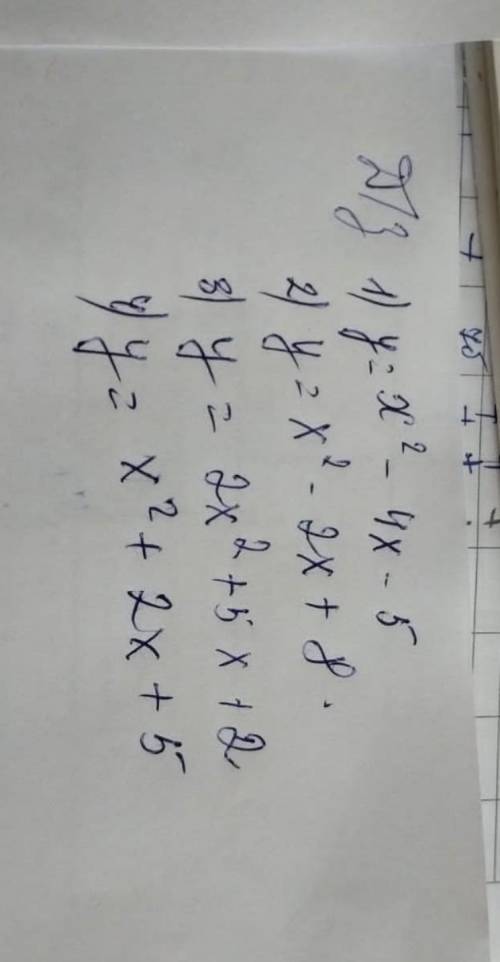 Д/з 1) y = x² - 4x - 5
2) y = x² - 2x + 8.
3) y = 2x² + 5x + 2.
4) y = x² + 2x + 5